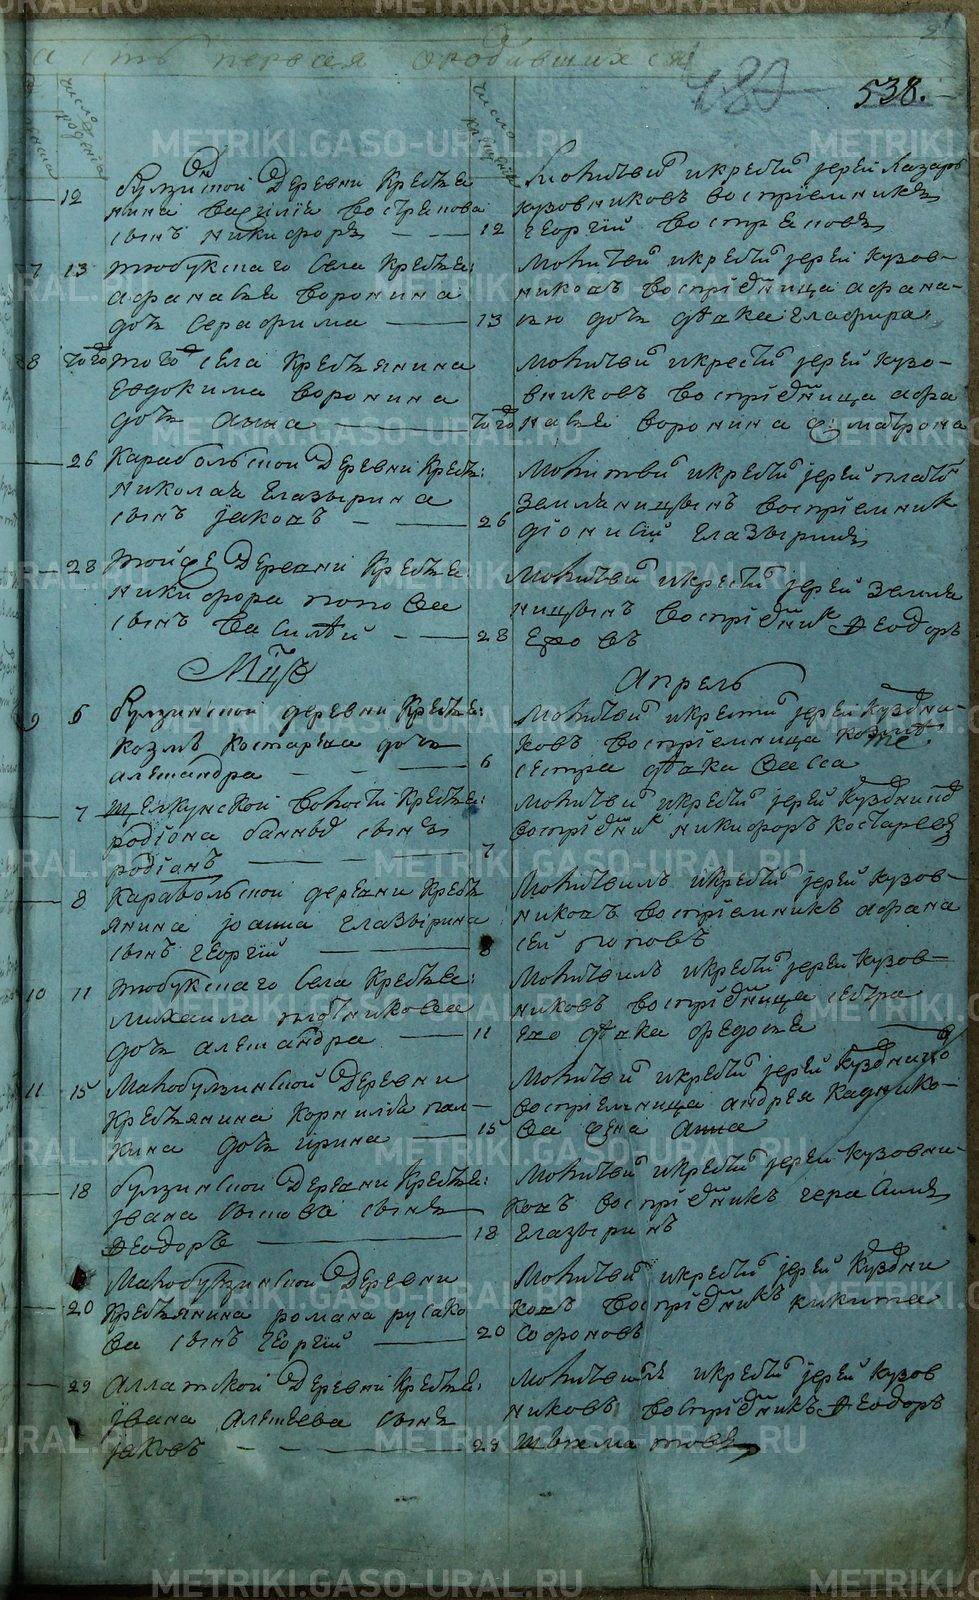 сть первая о родившихся
480
538.
число рождения
число крещения
12 Булзинской деревни крестья
нина василия вострякова
сынъ никифоръ — 12
Молитвой и крестилъ иерей Лазарь
кузовниковъ восприемникъ
георгий востряковъ
7 13 тюбукскаго села крестья:
афанасья воронина
дочь серафима — 13
молитвой и крестилъ иерей кузов-
никовъ восприемница афана-
сью дочь дьячка глафира
8 того того села крестьянина
евдокима воронина
дочь анна — того
молитвой и крестилъ иерей кузо-
вниковъ восприемница афа
насья воронина матрона
26 Карабольской деревни кресть:
николая глазырина
сынъ яковъ — 26
молитвой и крестилъ иерей
земляницынъ восприемник
дионисий глазыринъ
28 тойже деревни крестья:
никифора попова
сынъ василей — 28
молитвой и крестилъ иерей земля
ницынъ восприемник Феодоръ
Мцъ Апрель
9 6 Булзинской деревни крестья:
козмы костарева дочь
александра — 6
молитвой и крестилъ иерей кузовни-
ковъ восприемница
сестра дьячка васса
7 щелкунской волости крестья:
родиона банных сынъ
родианъ — 7
молитвой и крестилъ иерей кузовников
восприемник никифоръ костаревъ
8 Карабольской деревни кресть
янина иоанна глазырина
сынъ георгий — 8
Молитвилъ и крестилъ иерей кузов-
никовъ восприемникъ афана
сей поповъ
10 11 тюбукскаго села крестья:
михаила плотникова
дочь александра — 11
Молитвилъ и крестилъ иерей кузов-
никовъ восприемница сестра
его дьячка федосья
11 15 Малобулзинской деревни
крестьянина корнилия пал-
кина дочь ирина — 15
Молитвой и крестилъ иерей кузовников
восприемница андрея кадчико-
ва жена анна
18 булзинской деревни крестья:
ивана сысова сынъ
Феодоръ — 18
Молитвой и крестилъ иерей кузовни-
ковъ восприемникъ герасимъ
глазыринъ
20 Малобулзинской деревни
крестьянина романа русако
ва сынъ георгий — 20
Молитвой и крестилъ иерей кузовни
ковъ восприемникъ никита
софоновъ
29 Аллакской деревни крестья:
ивана алексеева сынъ
яковъ — 29
молитвилъ и крестилъ иерей кузов
никовъ восприемникъ Феодоръ
METRIKI.GASO-URAL.RU